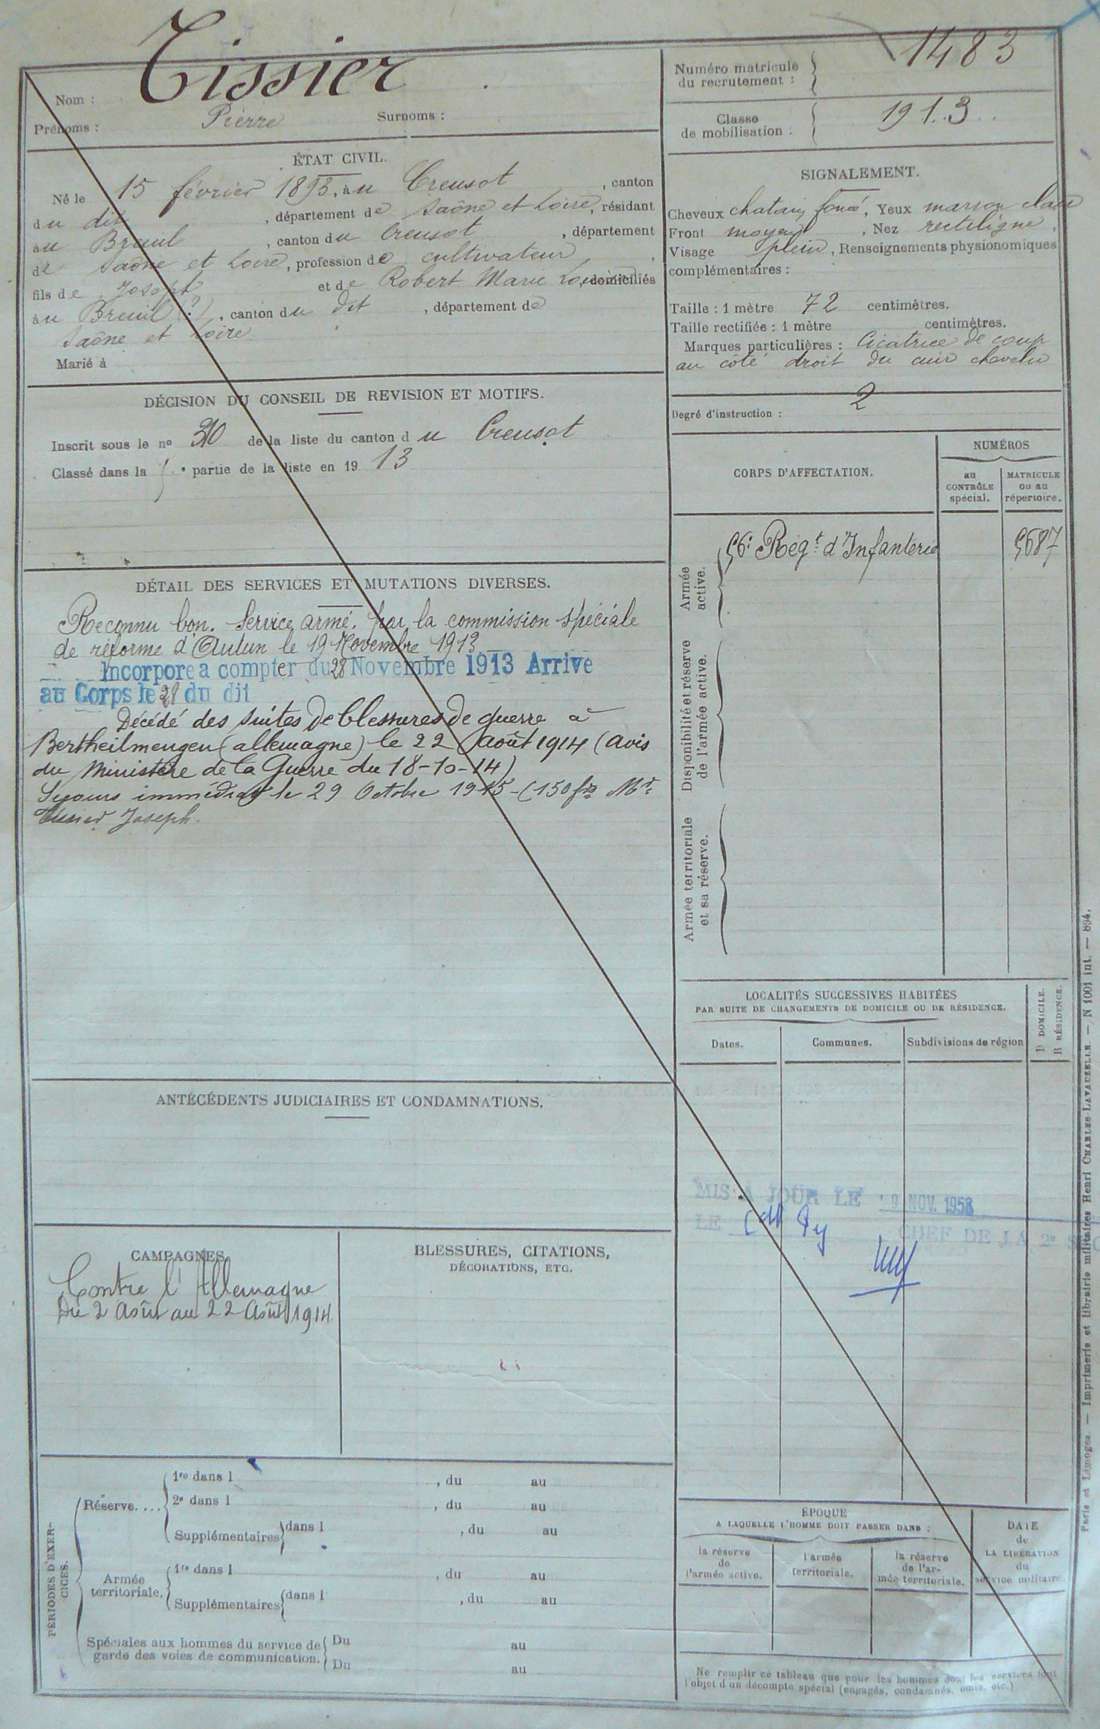 Nom : Tissier
Prénoms : Pierre Surnoms :
ÉTAT CIVIL.
Né le 15 février 1893, à u Creusot, canton
du dit, département de Saône et Loire, résidant
au Breuil, canton du Creusot, département
de Saône et Loire, profession de cultivateur,
fils de Joseph et de Robert Marie domiciliés
au Breuil (?), canton du dit, département de
Saône et Loire
Marié à
DÉCISION DU CONSEIL DE REVISION ET MOTIFS.
Inscrit sous le no de la liste du canton du Creusot
Classé dans la partie de la liste en 1913
DÉTAIL DES SERVICES ET MUTATIONS DIVERSES.
Reconnu bon. Service armé. par la commission spéciale
de réforme d'Autun le 19 Novembre 1913.
Incorpore a compter du 28 Novembre 1913 Arrive
au Corps le 28 du dit
Décédé des suites de blessures de guerre à
Bertheilmengen (allemagne) le 22 Août 1914 (avis
du Ministère de la Guerre du 18-10-14)
immédiat le 29 Octobre 1915 - (150 frs Mr
Tissier Joseph.
ANTÉCÉDENTS JUDICIAIRES ET CONDAMNATIONS.
CAMPAGNES.
Contre l'Allemagne
Du 2 Août au 22 Août 1914
BLESSURES, CITATIONS,
DÉCORATIONS, ETC.
PÉRIODES D'EXER-
CICES.
Réserve....
1re dans l , du au
2e dans l , du au
Supplémentaires dans l , du au
Armée
territoriale.
1re dans l , du au
Supplémentaires dans l , du au
Spéciales aux hommes du service de
garde des voies de communication.
Du au
Du au
Numéro matricule
du recrutement : 1483
Classe
de mobilisation : 1913
SIGNALEMENT.
Cheveux chatain foncé, Yeux marron clair
Front moyen, Nez rectiligne,
Visage plein, Renseignements physionomiques
complémentaires :
Taille : 1 mètre 72 centimètres.
Taille rectifiée : 1 mètre centimètres.
Marques particulières : Cicatrice de coup
au côté droit du cuir chevelu
Degré d'instruction : 2
CORPS D'AFFECTATION.
NUMÉROS
au
CONTRÔLE
spécial.
MATRICULE
ou au
répertoire.
Armée
active.
56e Régt d'Infanterie 5687
Disponibilité et réserve
de l'armée active.
Armée territoriale
et sa réserve.
LOCALITÉS SUCCESSIVES HABITÉES
PAR SUITE DE CHANGEMENTS DE DOMICILE OU DE RÉSIDENCE.
Dates. Communes. Subdivisions de région
D DOMICILE.
R RÉSIDENCE.
MIS A JOUR LE 9 NOV. 1958
LE CHEF DE LA 2e
ÉPOQUE
A LAQUELLE L'HOMME DOIT PASSER DANS :
la réserve
de
l'armée active.
l'armée
territoriale.
la réserve
de l'ar-
mée territoriale.
DATE
de
LA LIBÉRATION
du
service militaire.
Ne remplir ce tableau que pour les hommes dont les services font
l'objet d'un décompte spécial (engagés, condamnés, omis, etc.)
Paris et Limoges. — Imprimerie et librairie militaires Henri CHARLES-LAVAUZELLE. — N 1001 int. — 894.